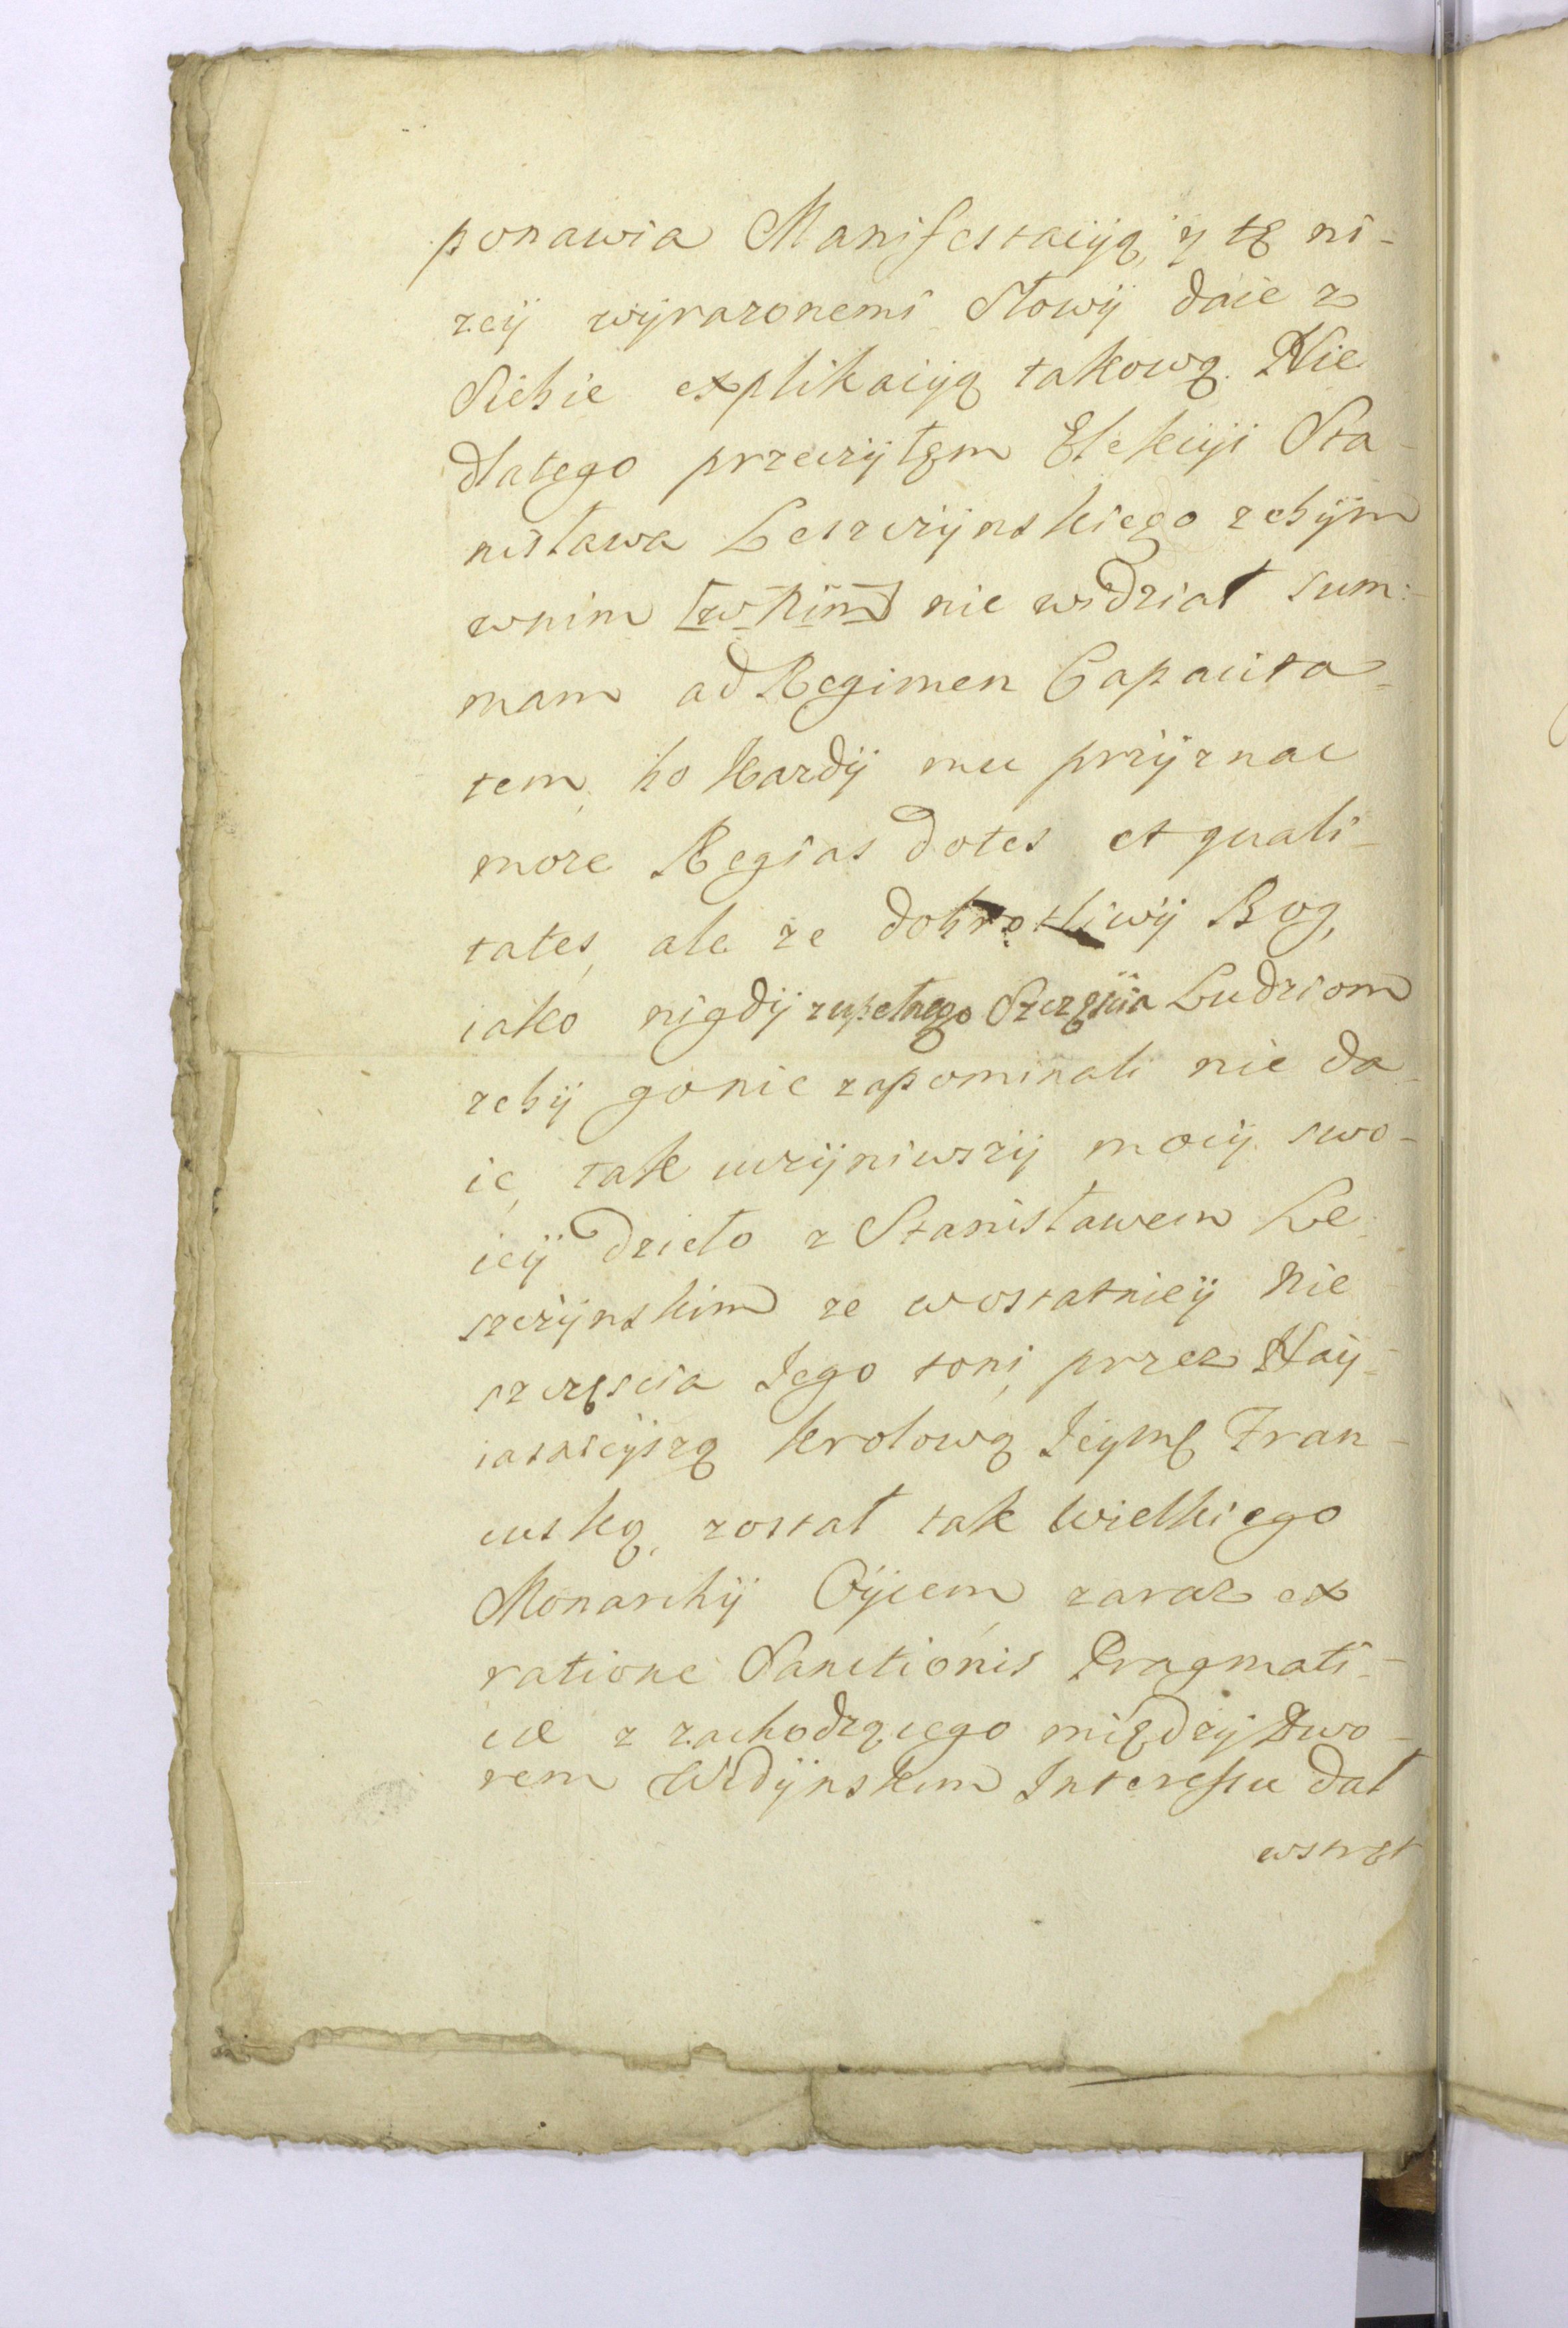 ponawia Manifestacyą, y tę ni-
zey wyrazonemi Słowy daie z
Siebie explikacyą takową. Nie
dlatego przeczyłęm Elekcyi Sta-
nisława Leszczynskiego zebym
wnim [w Nim] nie widział sum:
mam ad Regimen Capacita-
tem, bo kazdy mu przyznac
moze Regias dotes et quali-
tates, ale ze dobrotliwy Bog,
iako nigdy zupełnego Szczęscia Ludziom
zeby gonie zapominali nie da-
ie, tak uczyniwszy mocy swo-
iey Dzieło z Stanisławem Le-
szczynskim ze wostatniey Nie-
szczęscia Jego toni, przez Nay-
iasnieyszą Krolową Jeymę Fran-
cuską, został tak wielkiego
Monarchy Oycem, zaraz ex
ratione Sanctionis Pragmati-
cæ z zachodzącego między Dwo-
rem Widynskim Interessu dał
wstręt